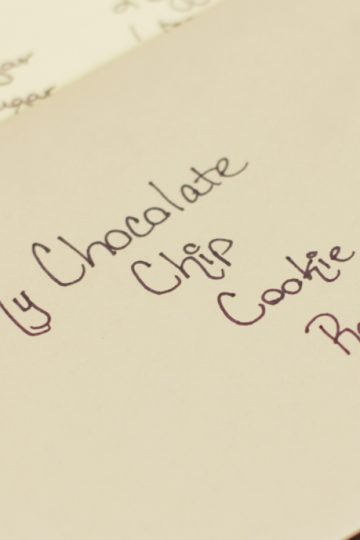 ugar
ly Chocolate
Chip
Cookie